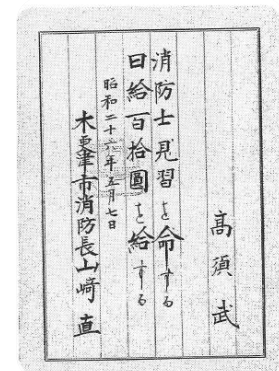 高須武
消防士見習を命する
日給百拾圓を給する
昭和二十六年五月七日
木更津市消防長山﨑直